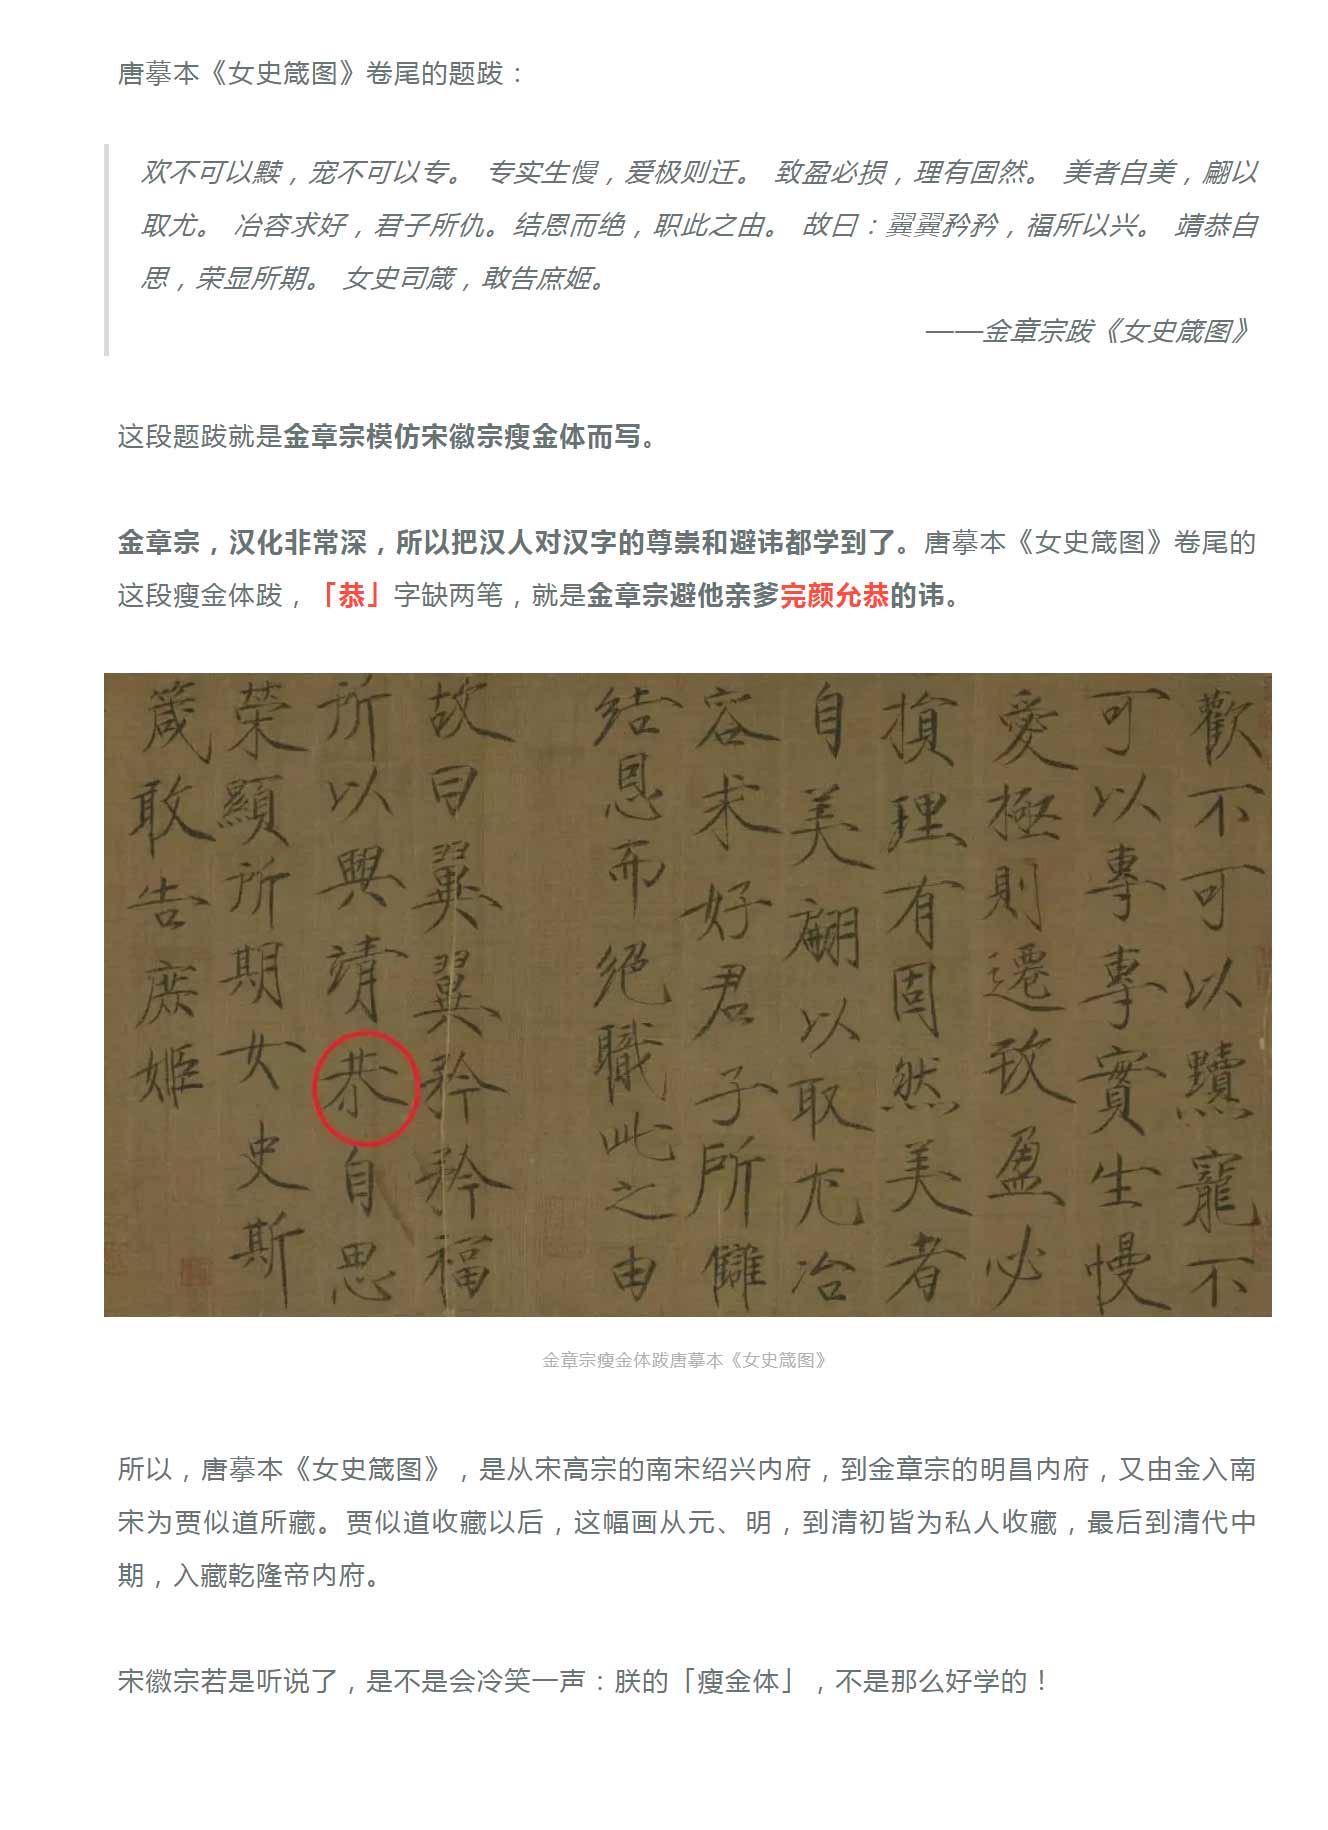 唐摹本《女史箴图》卷尾的题跋：
欢不可以黩，宠不可以专。 专实生慢，爱极则迁。 致盈必损，理有固然。 美者自美，翩以
取尤。 冶容求好，君子所仇。结恩而绝，职此之由。 故曰：翼翼矜矜，福所以兴。 靖恭自
思，荣显所期。 女史司箴，敢告庶姬。
——金章宗跋《女史箴图》
这段题跋就是金章宗模仿宋徽宗瘦金体而写。
金章宗，汉化非常深，所以把汉人对汉字的尊崇和避讳都学到了。唐摹本《女史箴图》卷尾的
这段瘦金体跋，「恭」字缺两笔，就是金章宗避他亲爹完颜允恭的讳。
歡不可以黷寵不
可以專專實生慢
愛極則遷致盈必
損理有固然美者
自美翩以取尤冶
容求好君子所讎
結恩而絕職此之由
故曰翼翼矜矜福
所以興靖恭自思
榮顯所期女史斯
箴敢告庶姬
金章宗瘦金体跋唐摹本《女史箴图》
所以，唐摹本《女史箴图》，是从宋高宗的南宋绍兴内府，到金章宗的明昌内府，又由金入南
宋为贾似道所藏。贾似道收藏以后，这幅画从元、明，到清初皆为私人收藏，最后到清代中
期，入藏乾隆帝内府。
宋徽宗若是听说了，是不是会冷笑一声：朕的「瘦金体」，不是那么好学的！